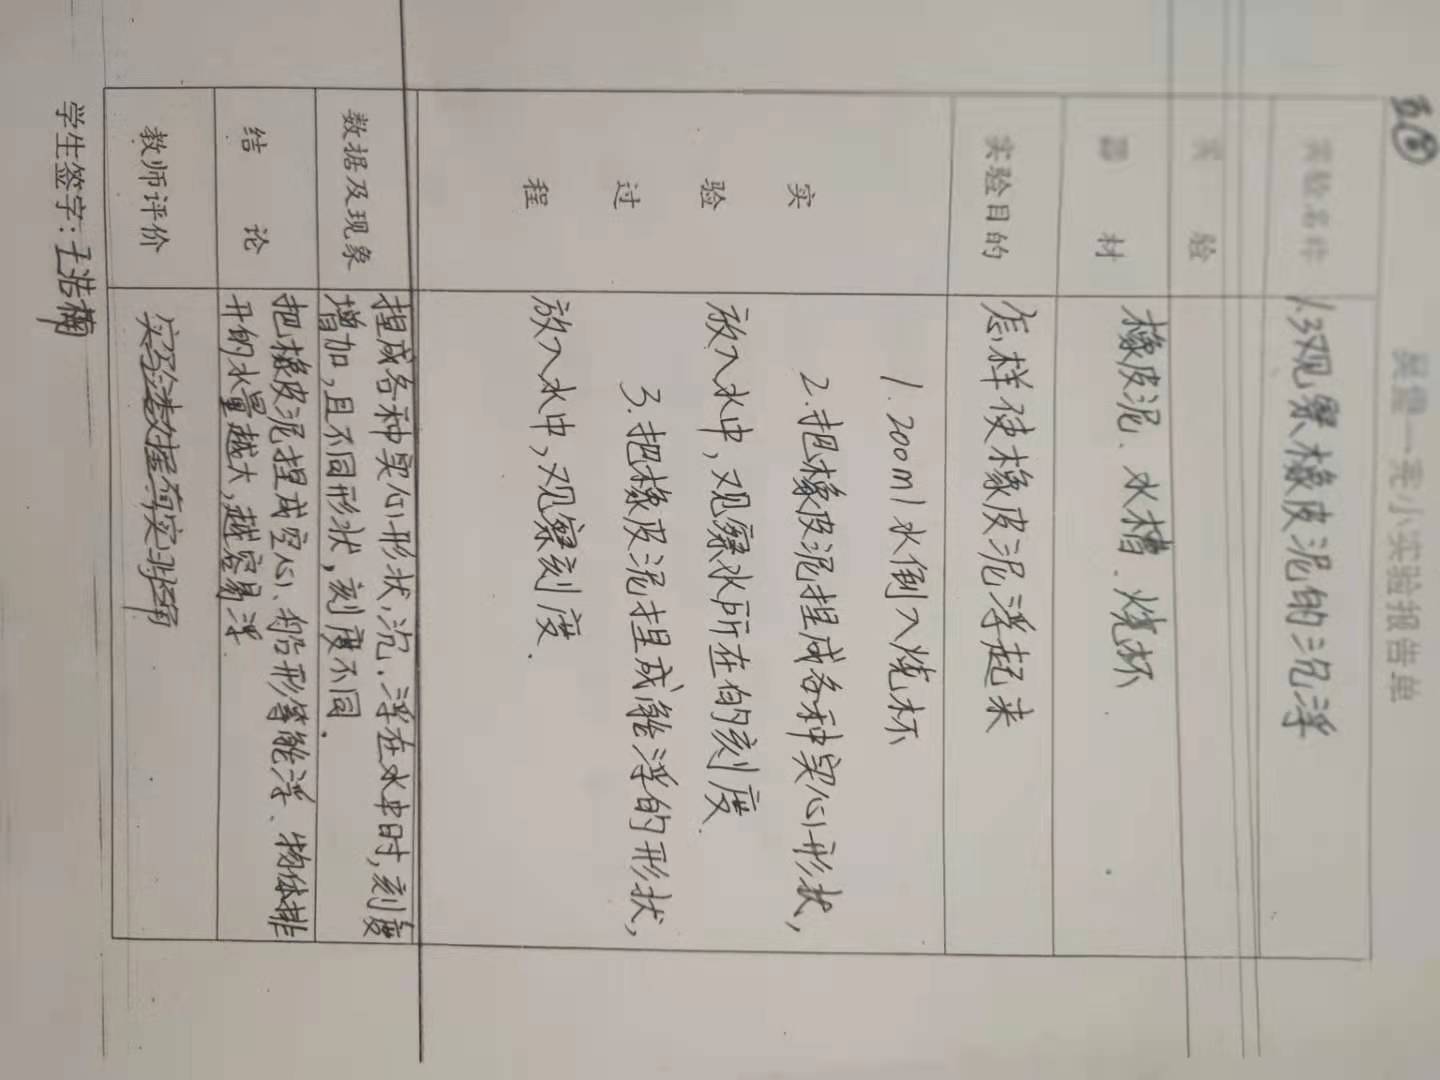 五(8)
一完小实验报告单
实验名称 1.3观察橡皮泥的沉浮
实验
器材 橡皮泥、水槽、烧杯
实验目的 怎样使橡皮泥浮起来
实验过程
1. 200ml水倒入烧杯
2. 把橡皮泥捏成各种实心形状,
放入水中,观察水所在的刻度.
3. 把橡皮泥捏成能浮的形状,
放入水中,观察刻度.
数据及现象 捏成各种实心形状,沉.浮在水中时,刻度
增加,且不同形状,刻度不同.
结论 把橡皮泥捏成空心、船形等能浮、物体排
开的水量越大,越容易浮
教师评价 实验数据真实准确
学生签字:王浩楠